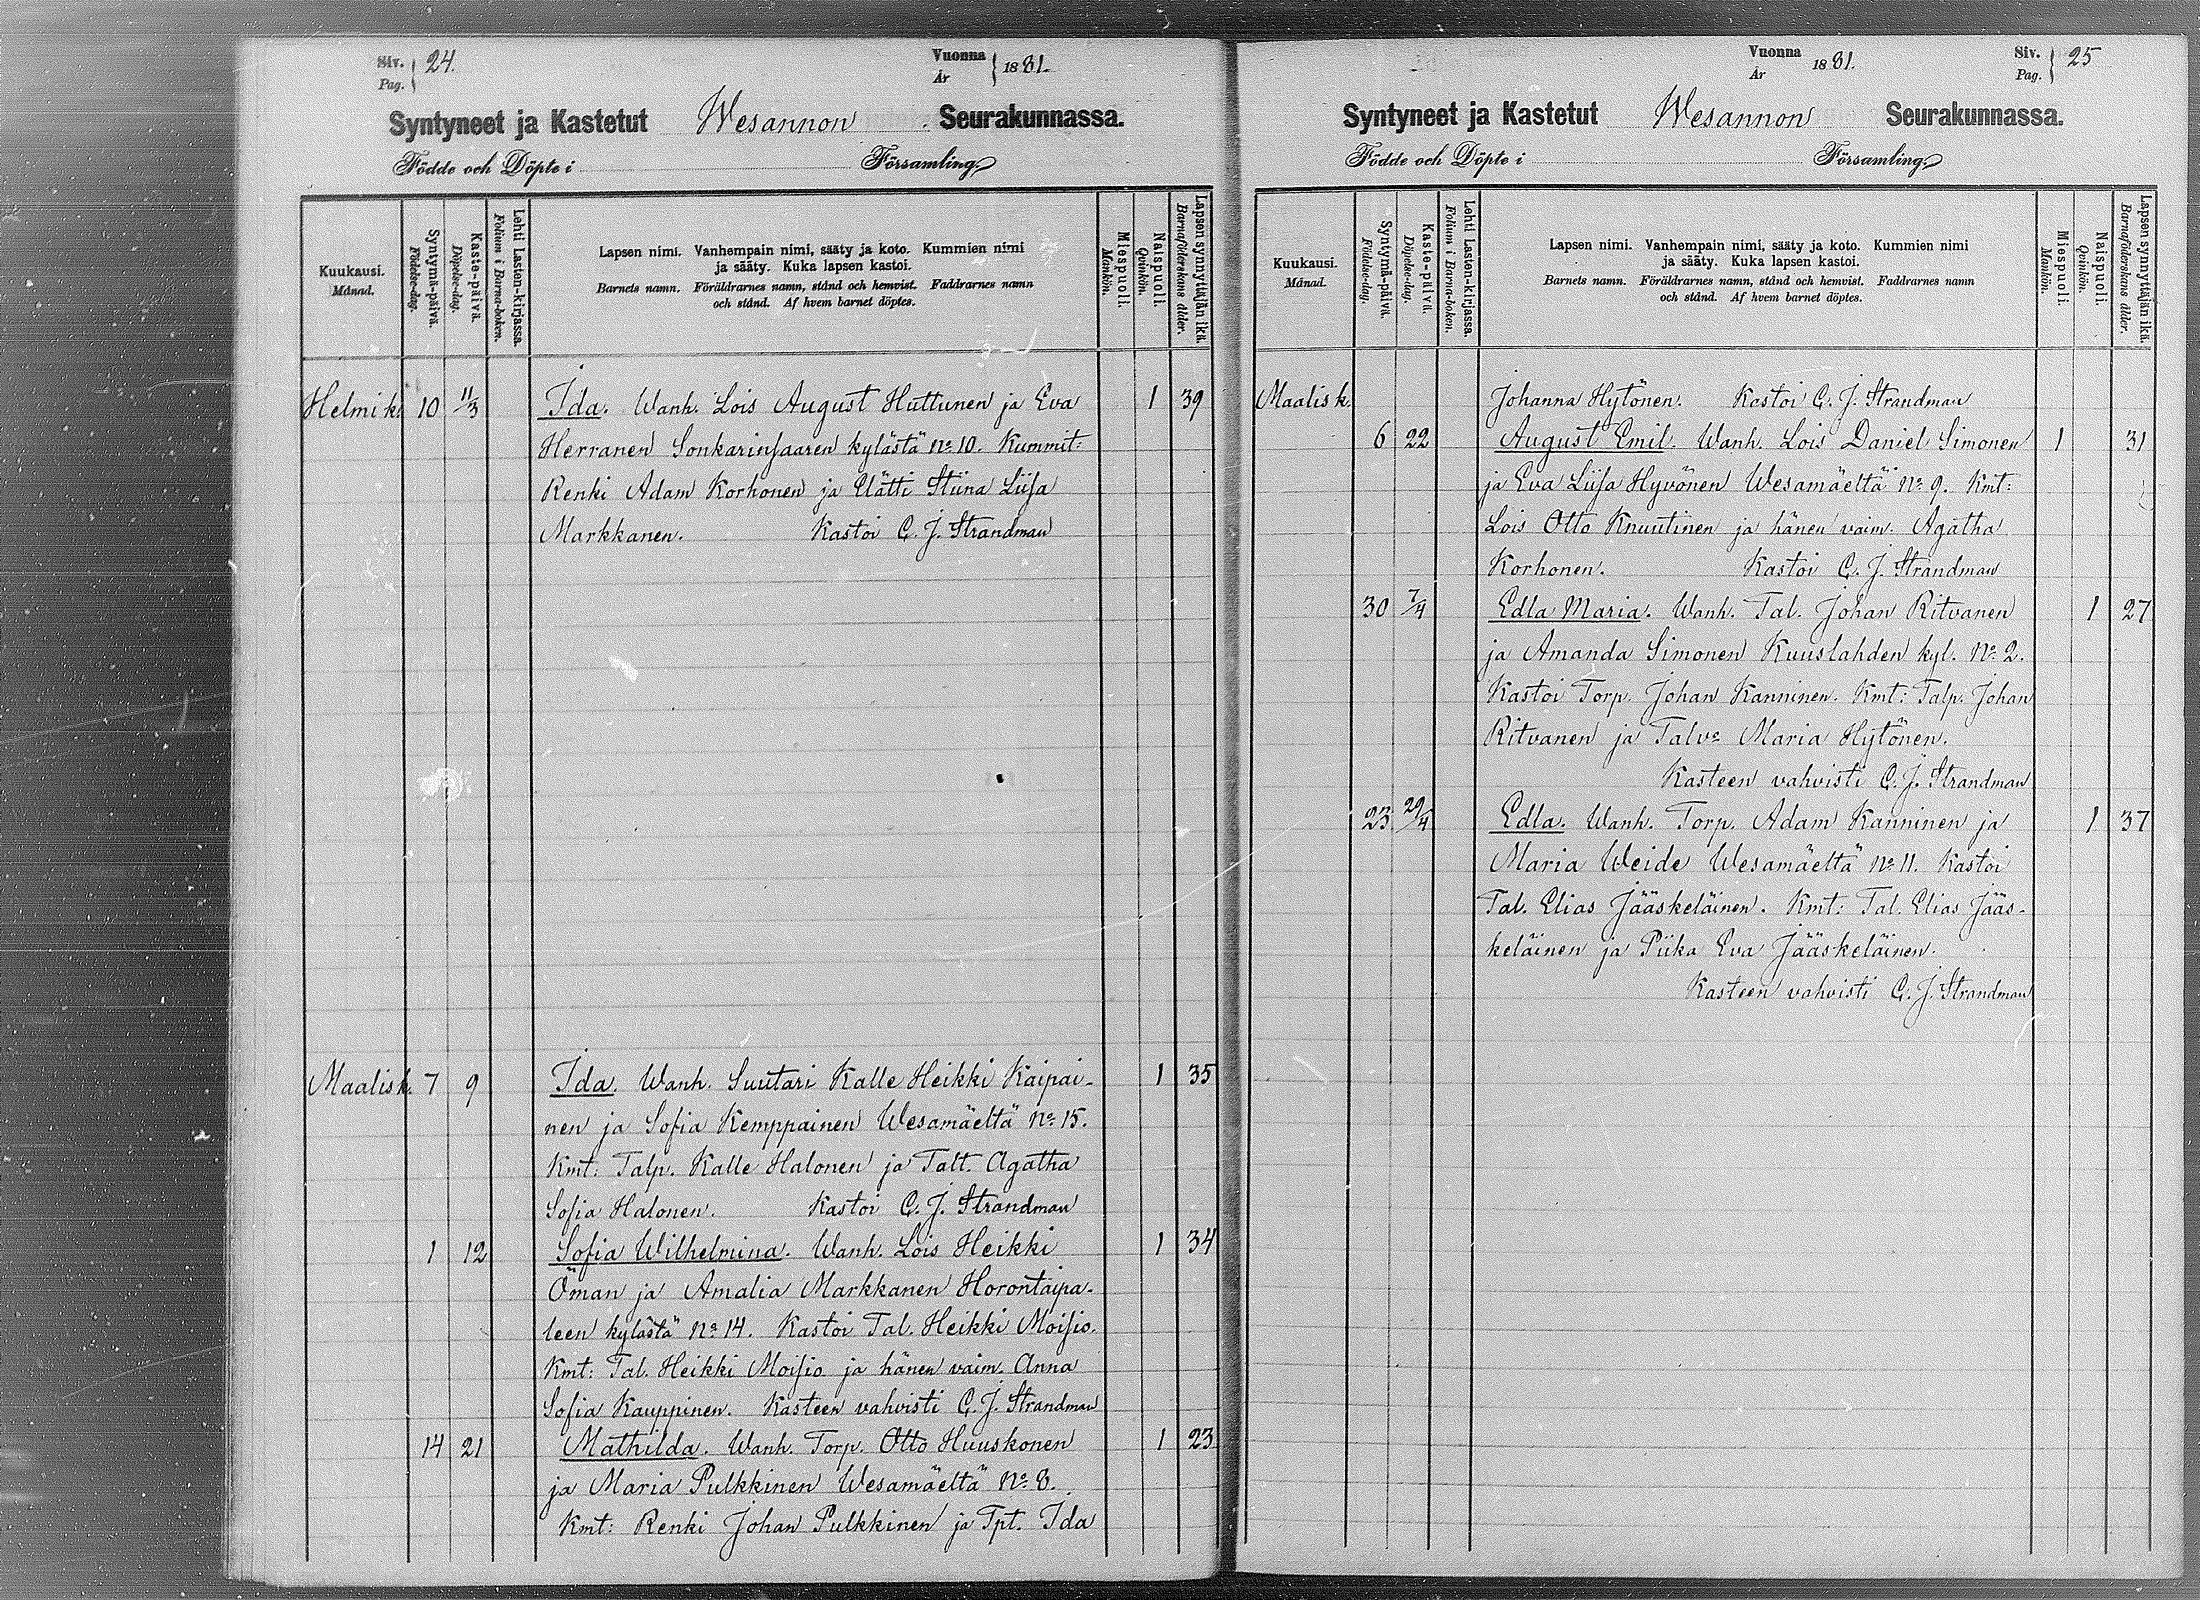 Siv. 24.
Pag.
Vuonna 1881.
År
Syntyneet ja Kastetut Wesannon Seurakunnassa.
Födde och Döpte i Församling.
Kuukausi.
Månad.
Syntymä-päivä.
Födelse-dag.
Kaste-päivä.
Döpelse-dag.
Lehti Lasten-kirjassa.
Folium i Barna-boken.
Lapsen nimi. Vanhempain nimi, sääty ja koto. Kummien nimi
ja sääty. Kuka lapsen kastoi.
Barnets namn. Föräldrarnes namn, stånd och hemvist. Faddrarnes namn
och stånd. Af hvem barnet döptes.
Miespuoli.
Mankön.
Naispuoli.
Qvinkön.
Lapsen synnyttäjän ikä.
Barnaföderskans ålder.
Helmik. 10 11/3 Ida. Wanh. Lois August Huttunen ja Eva 1 39
Herranen Sonkarinsaaren kylästä No 10. Kummit:
Renki Adam Korhonen ja Elätti Stiina Liisa
Markkanen. Kastoi C. J. Strandman
Maalisk. 7 9 Ida. Wanh. Suutari Kalle Heikki Kaipai- 1 35
nen ja Sofia Kemppainen Wesamäeltä No 15.
Kmt: Talp. Kalle Halonen ja Talt. Agatha
Sofia Halonen. Kastoi C. J. Strandman
1 12 Sofia Wilhelmina. Wanh. Lois Heikki 1 34
Öman ja Amalia Markkanen Horontaipa-
leen kylästä No 14. Kastoi Tal. Heikki Moisio.
Kmt: Tal. Heikki Moisio ja hänen vaim. Anna
Sofia Kauppinen. Kasteen vahvisti C. J. Strandman
14 21 Mathilda. Wanh. Torp. Otto Huuskonen 1 23
ja Maria Pulkkinen Wesamäeltä No 8.
Kmt: Renki Johan Pulkkinen ja Tpt. Ida
Vuonna 1881.
År
Siv. 25
Pag.
Syntyneet ja Kastetut Wesannon Seurakunnassa.
Födde och Döpte i Församling.
Kuukausi.
Månad.
Syntymä-päivä.
Födelse-dag.
Kaste-päivä.
Döpelse-dag.
Lehti Lasten-kirjassa.
Folium i Barna-boken.
Lapsen nimi. Vanhempain nimi, sääty ja koto. Kummien nimi
ja sääty. Kuka lapsen kastoi.
Barnets namn. Föräldrarnes namn, stånd och hemvist. Faddrarnes namn
och stånd. Af hvem barnet döptes.
Miespuoli.
Mankön.
Naispuoli.
Qvinkön.
Lapsen synnyttäjän ikä.
Barnaföderskans ålder.
Maalisk. Johanna Hytönen. Kastoi C. J. Strandman
6 22 August Emil. Wanh. Lois Daniel Simonen 1 31
ja Eva Liisa Hyvönen Wesamäeltä No 9. Kmt:
Lois Otto Knuutinen ja hänen vaim. Agatha
Korhonen. Kastoi C. J. Strandman
30 7/4 Edla Maria. Wanh. Tal. Johan Ritvanen 1 27
ja Amanda Simonen Kuuslahden kyl. No 2.
Kastoi Torp. Johan Kanninen. Kmt: Talp. Johan
Ritvanen ja Talva Maria Hytönen.
Kasteen vahvisti C. J. Strandman
23 29/4 Edla. Wanh. Torp. Adam Kanninen ja 1 37
Maria Weide Wesamäeltä No 11. Kastoi
Tal. Elias Jääskeläinen. Kmt: Tal. Elias Jääs-
keläinen ja Piika Eva Jääskeläinen.
Kasteen vahvisti C. J. Strandman